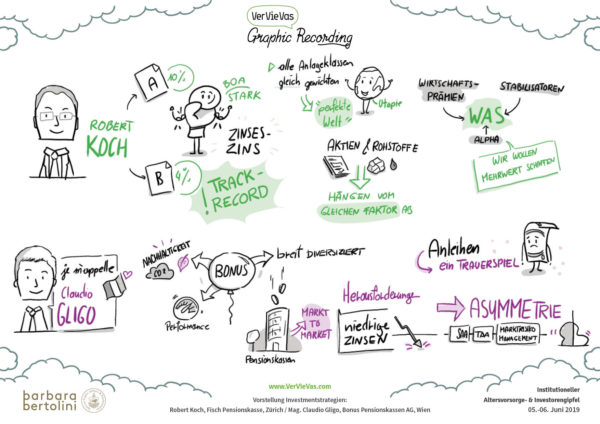 VerVieVas
Graphic Recording
ROBERT
KOCH
A
10%
BOA
STARK
ZINSES-
ZINS
B
4%
TRACK-
RECORD
!
alle Anlageklassen
gleich gewichten
"perfekte
Welt"
Utopie
AKTIEN & ROHSTOFFE
HÄNGEN VOM
GLEICHEN FAKTOR AB
WIRTSCHAFTS-
PRÄMIEN
STABILISATOREN
WAS
ALPHA
WIR WOLLEN
MEHRWERT SCHAFFEN
je m'appelle
Claudio
GLIGO
NACHHALTIGKEIT
CO2
BONUS
Performance
breit DIVERSIFIZIERT
Pensionskassen
MARKT
TO
MARKET
Herausforderunge
niedrige
ZINSEN
Anleihen
ein TRAUERSPIEL
ASYMMETRIE
SAA
TAA
MARKTRISIKO
MANAGEMENT
barbara
bertolini
www.VerVieVas.com
Vorstellung Investmentstrategien:
Robert Koch, Fisch Pensionskasse, Zürich / Mag. Claudio Gligo, Bonus Pensionskassen AG, Wien
Institutioneller
Altersvorsorge- & Investorengipfel
05.-06. Juni 2019